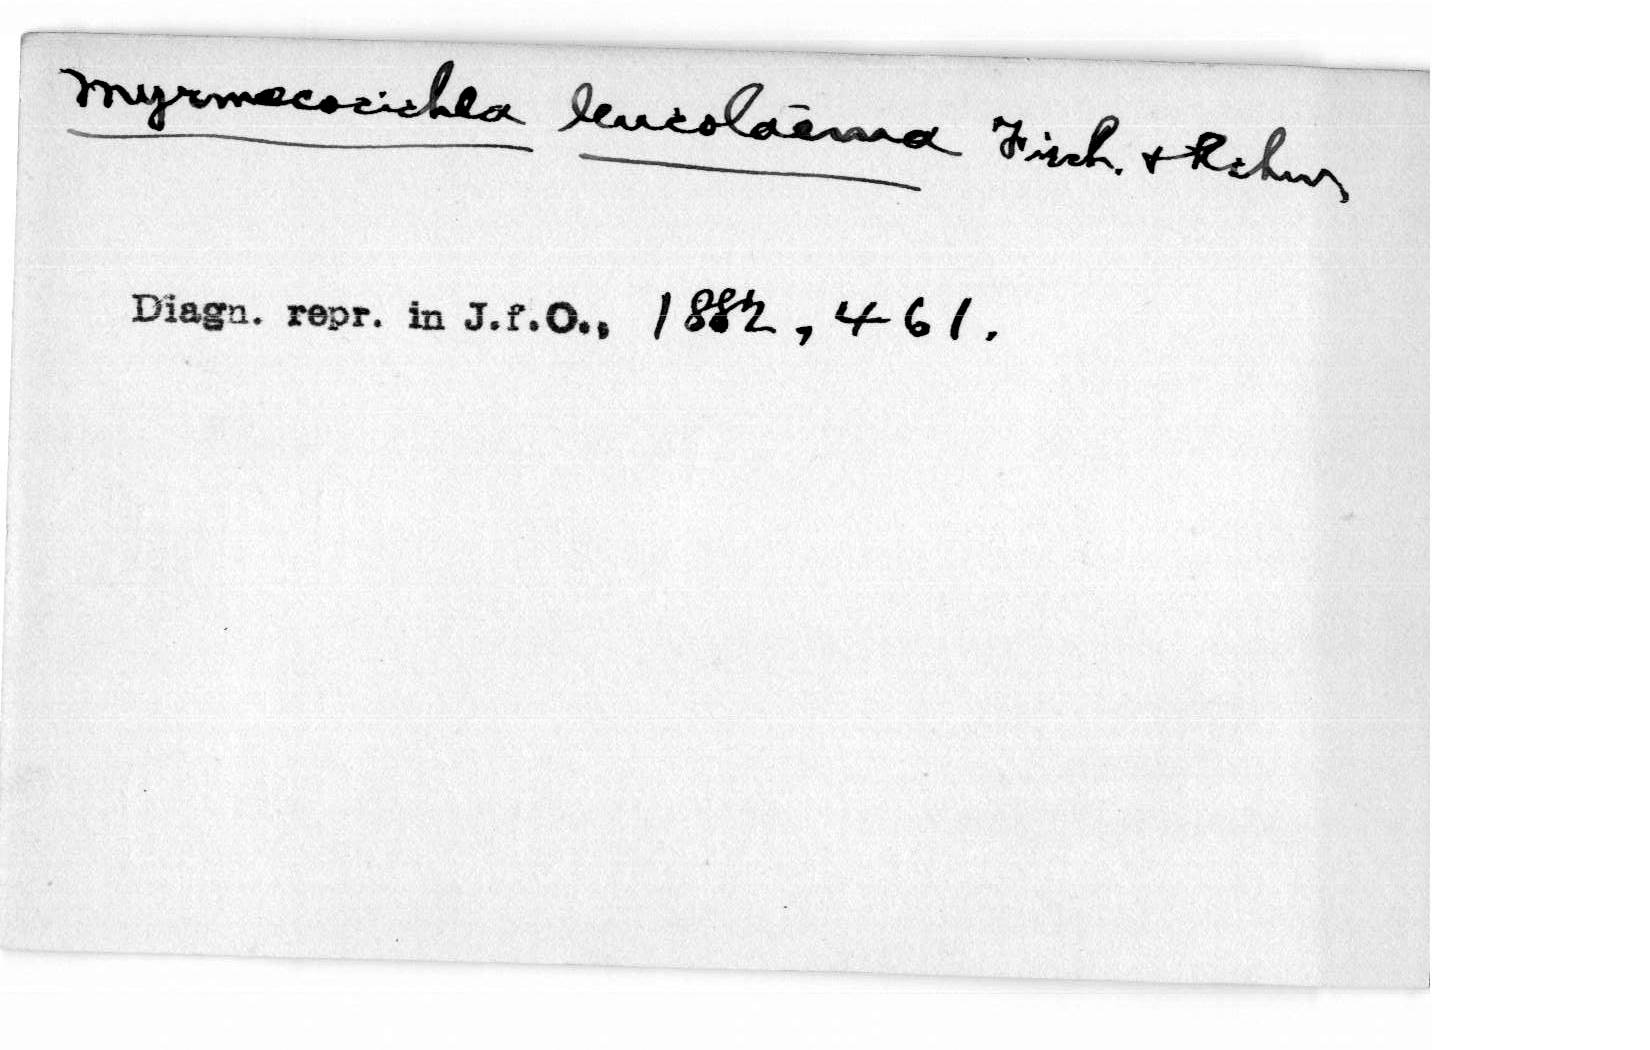 Myrmecocichla leucolaema Fisch. & Rchw
Diagn. repr. in J.f.O., 1882, 461.